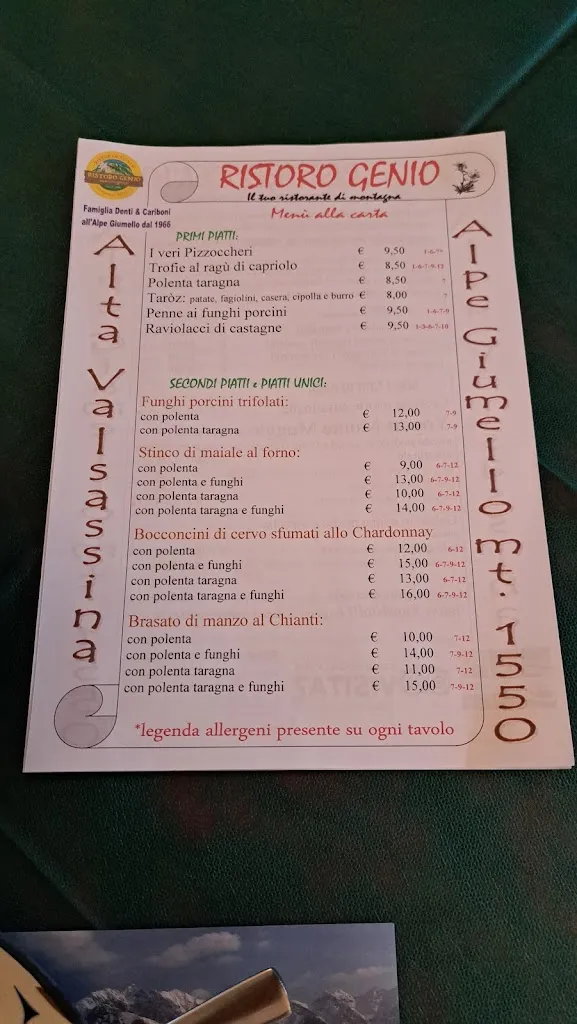 RISTORO GENIO
RISTORO GENIO
Il tuo ristorante di montagna
Famiglia Denti & Cariboni
all'Alpe Giumello dal 1966
Menù alla carta
Alta Valsassina
Alpe Giumello mt. 1550
PRIMI PIATTI:
I veri Pizzoccheri € 9,50 1-6-7*
Trofie al ragù di capriolo € 8,50 1-6-7-9-12
Polenta taragna € 8,50 7
Taròz: patate, fagiolini, casera, cipolla e burro € 8,00 7
Penne ai funghi porcini € 9,50 1-6-7-9
Raviolacci di castagne € 9,50 1-3-6-7-10
SECONDI PIATTI e PIATTI UNICI:
Funghi porcini trifolati:
con polenta € 12,00 7-9
con polenta taragna € 13,00 7-9
Stinco di maiale al forno:
con polenta € 9,00 6-7-12
con polenta e funghi € 13,00 6-7-9-12
con polenta taragna € 10,00 6-7-12
con polenta taragna e funghi € 14,00 6-7-9-12
Bocconcini di cervo sfumati allo Chardonnay
con polenta € 12,00 6-12
con polenta e funghi € 15,00 6-7-9-12
con polenta taragna € 13,00 6-7-12
con polenta taragna e funghi € 16,00 6-7-9-12
Brasato di manzo al Chianti:
con polenta € 10,00 7-12
con polenta e funghi € 14,00 7-9-12
con polenta taragna € 11,00 7-12
con polenta taragna e funghi € 15,00 7-9-12
*legenda allergeni presente su ogni tavolo